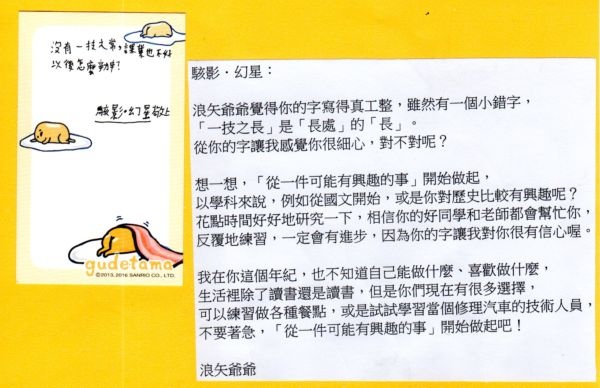 沒有一技之常，課業也不好
以後怎麼辦？
駭影·幻星敬上
gudetama
©2013, 2016 SANRIO CO., LTD.
駭影·幻星：
浪矢爺爺覺得你的字寫得真工整，雖然有一個小錯字，
「一技之長」是「長處」的「長」。
從你的字讓我感覺你很細心，對不對呢？
想一想，「從一件可能有興趣的事」開始做起，
以學科來說，例如從國文開始，或是你對歷史比較有興趣呢？
花點時間好好地研究一下，相信你的好同學和老師都會幫忙你，
反覆地練習，一定會有進步，因為你的字讓我對你很有信心喔。
我在你這個年紀，也不知道自己能做什麼、喜歡做什麼，
生活裡除了讀書還是讀書，但是你們現在有很多選擇，
可以練習做各種餐點，或是試試學習當個修理汽車的技術人員，
不要著急，「從一件可能有興趣的事」開始做起吧！
浪矢爺爺